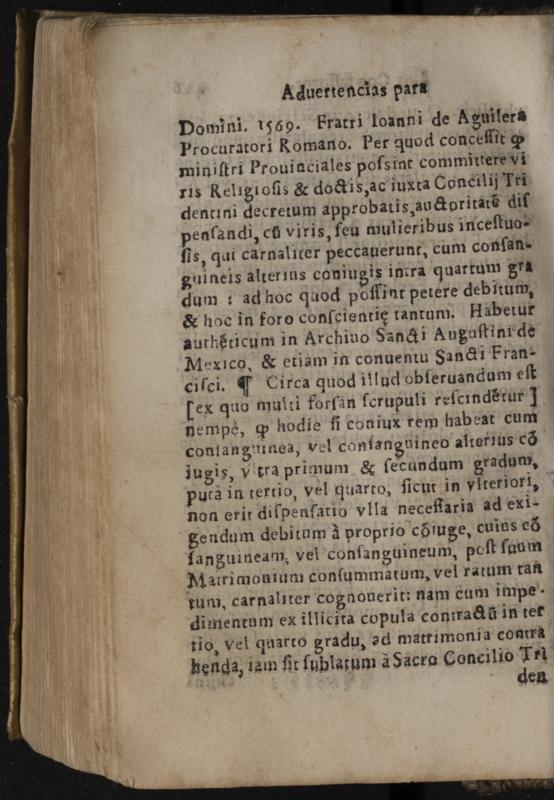 Aduertencias para
Domini. 1569. Fratri Ioanni de Aguilera
Procuratori Romano. Per quod concessit ꝙ
ministri Prouinciales possint committere vi
ris Religiosis & doctis, ac iuxta Concilij Tri
dentini decretum approbatis, auctoritatē dis
pensandi, cū viris, seu mulieribus incestuo-
sis, qui carnaliter peccauerunt, cum consan-
guineis alterius coniugis intra quartum gra
dum : ad hoc quod possint petere debitum,
& hoc in foro conscientię tantum. Habetur
authēticum in Archiuo Sancti Augustini de
Mexico, & etiam in conuentu Sancti Fran-
cisci. ¶ Circa quod illud obseruandum est
[ex quo multi forsan scrupuli rescindētur]
nempè, ꝙ hodie si coniux rem habeat cum
consanguinea, vel consanguineo alterius cō
iugis, vltra primum & secundum gradum,
putà in tertio, vel quarto, sicut in vlteriori,
non erit dispensatio vlla necessaria ad exi-
gendum debitum à proprio cōiuge, cuius cō
sanguineam, vel consanguineum, post suum
Matrimonium consummatum, vel ratum tan
tum, carnaliter cognouerit: nam cum impe-
dimentum ex illicita copula contractū in ter
tio, vel quarto gradu, ad matrimonia contra
henda, iam sit sublatum à Sacro Concilio Tri
den